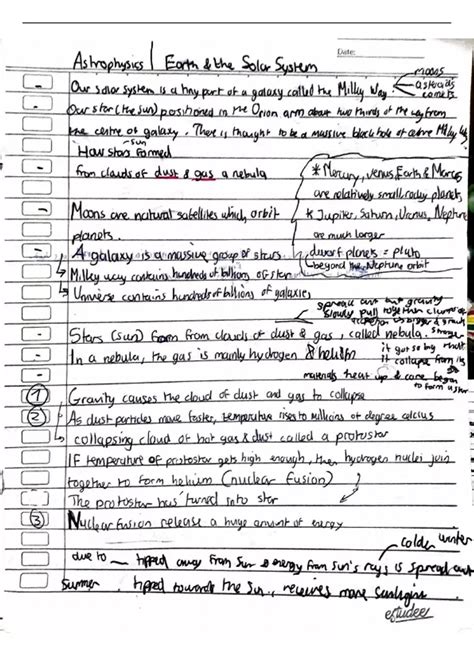 Date:
Astrophysics | Earth & the Solar System
moons
asteroids
comets
- Our solar system is a tiny part of a galaxy called the Milky Way
Our star (the sun) positioned in the Orion arm about two thirds of the way from
the centre of galaxy. There is thought to be a massive black hole at centre Milky
sun
How stars formed
- from clouds of dust & gas a nebula
* Mercury, Venus, Earth & Mars
are relatively small, rocky planets
* Jupiter, Saturn, Uranus, Neptune
are much larger
dwarf planets = pluto
beyond the Neptune orbit
- Moons are natural satellites which orbit
planets.
- A galaxy is a massive group of stars
Milky way contains hundreds of billions of star
Universe contains hundreds of billions of galaxies
spreads out but gravity
slowly pull together
- Stars (sun) form from clouds of dust & gas, called nebula.
- In a nebula, the gas is mainly hydrogen & helium
it got so big that
it collapse from its
materials heat up & core began
to form a star
① Gravity causes the cloud of dust and gas to collapse
② As dust particles move faster, temperature rises to millions of degree celcius
collapsing cloud of hot gas & dust called a protostar
If temperature of protostar gets high enough, then hydrogen nuclei join
together to form helium (nuclear fusion)
The protostar has turned into star
③ Nuclear fusion release a huge amount of energy
colder winter
due to tipped away from Sun & energy from Sun's rays is spread out
Summer tipped towards the Sun, receives more sunlight